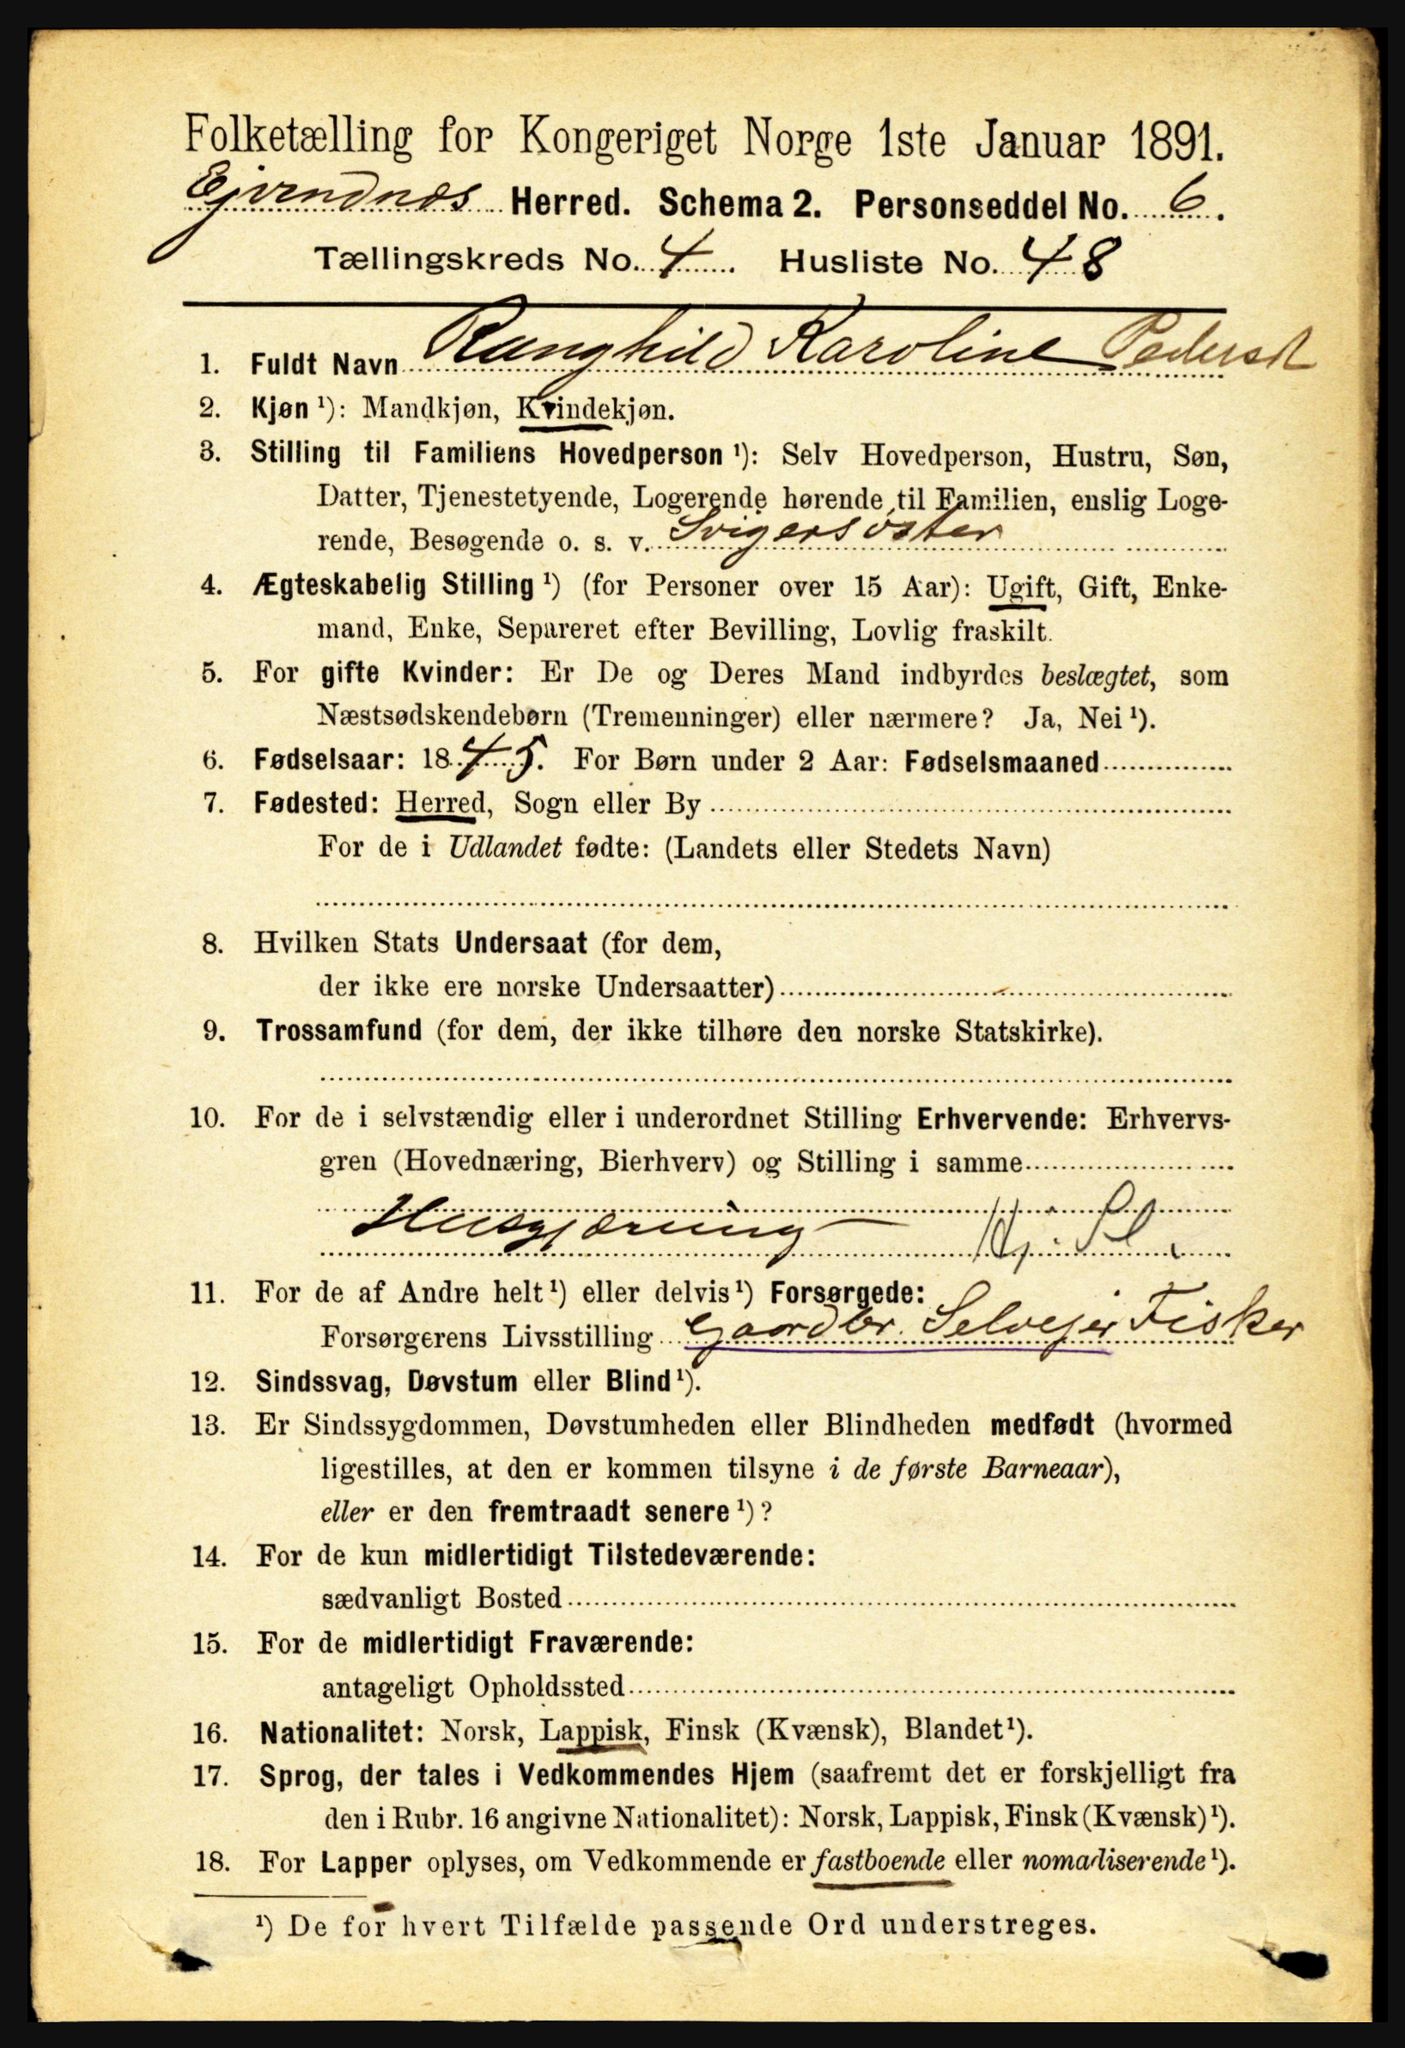 Folketælling for Kongeriget Norge 1ste Januar 1891.
Ejvindnæs Herred. Schema 2. Personseddel No. 6.
Tællingskreds No. 4. Husliste No. 48
1. Fuldt Navn Ranghild Karoline Pedersd
2. Kjøn ¹): Mandkjøn, Kvindekjøn.
3. Stilling til Familiens Hovedperson ¹): Selv Hovedperson, Hustru, Søn,
Datter, Tjenestetyende, Logerende hørende til Familien, enslig Loge-
rende, Besøgende o. s. v. Svigersøster
4. Ægteskabelig Stilling ¹) (for Personer over 15 Aar): Ugift, Gift, Enke-
mand, Enke, Separeret efter Bevilling, Lovlig fraskilt.
5. For gifte Kvinder: Er De og Deres Mand indbyrdes beslægtet, som
Næstsødskendebørn (Tremenninger) eller nærmere? Ja, Nei ¹).
6. Fødselsaar: 1845. For Børn under 2 Aar: Fødselsmaaned
7. Fødested: Herred, Sogn eller By
For de i Udlandet fødte: (Landets eller Stedets Navn)
8. Hvilken Stats Undersaat (for dem,
der ikke ere norske Undersaatter)
9. Trossamfund (for dem, der ikke tilhøre den norske Statskirke).
10. For de i selvstændig eller i underordnet Stilling Erhvervende: Erhvervs-
gren (Hovednæring, Bierhverv) og Stilling i samme
Husgjærning Hj. Sl.
11. For de af Andre helt ¹) eller delvis ¹) Forsørgede:
Forsørgerens Livsstilling Gaardbr. Selvejer Fisker
12. Sindssvag, Døvstum eller Blind ¹).
13. Er Sindssygdommen, Døvstumheden eller Blindheden medfødt (hvormed
ligestilles, at den er kommen tilsyne i de første Barneaar),
eller er den fremtraadt senere ¹)?
14. For de kun midlertidigt Tilstedeværende:
sædvanligt Bosted
15. For de midlertidigt Fraværende:
antageligt Opholdssted
16. Nationalitet: Norsk, Lappisk, Finsk (Kvænsk), Blandet ¹).
17. Sprog, der tales i Vedkommendes Hjem (saafremt det er forskjelligt fra
den i Rubr. 16 angivne Nationalitet): Norsk, Lappisk, Finsk (Kvænsk) ¹).
18. For Lapper oplyses, om Vedkommende er fastboende eller nomadiserende ¹).
¹) De for hvert Tilfælde passende Ord understreges.